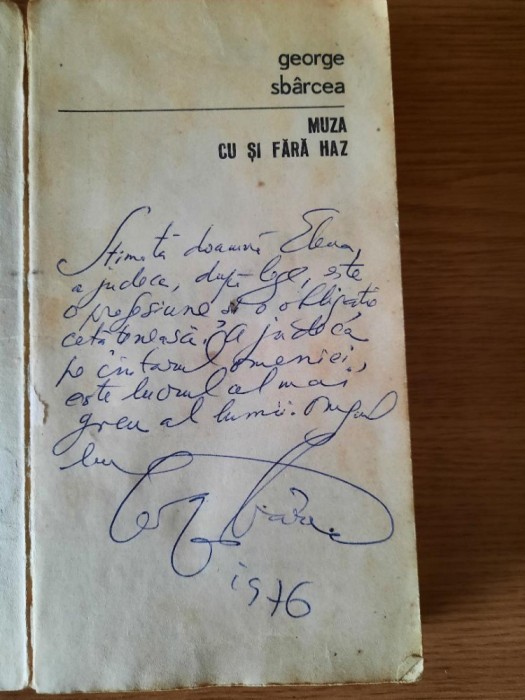 george
sbârcea
MUZA
CU ȘI FĂRĂ HAZ
Stimată doamnă Elena,
a judeca, după lege, este
o profesiune și o obligație
cetățenească. A judeca
pe cîntarul omeniei,
este lucrul cel mai
greu al lumii. Omagiul
lui
George Sbârcea
1976